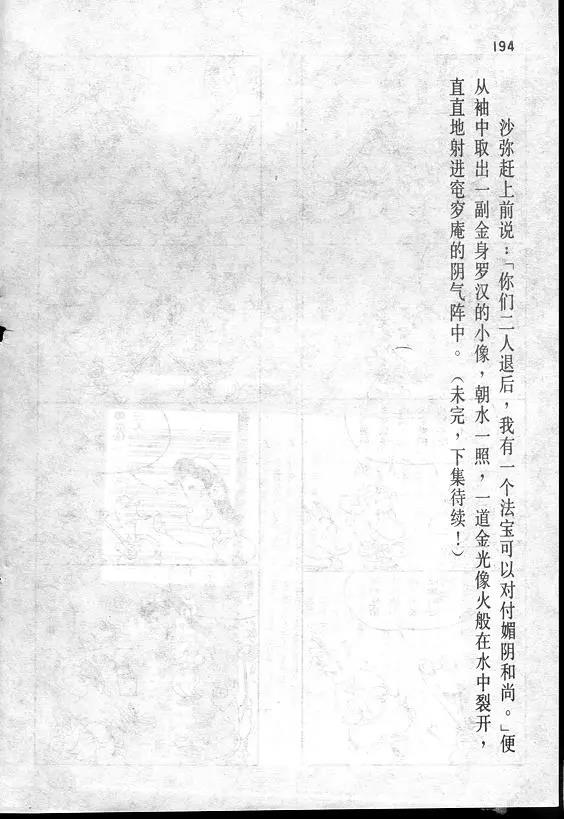 194
沙弥赶上前说：「你们二人退后，我有一个法宝可以对付媚阴和尚。」便
从袖中取出一副金身罗汉的小像，朝水一照，一道金光像火般在水中裂开，
直直地射进窀穸庵的阴气阵中。（未完，下集待续！）